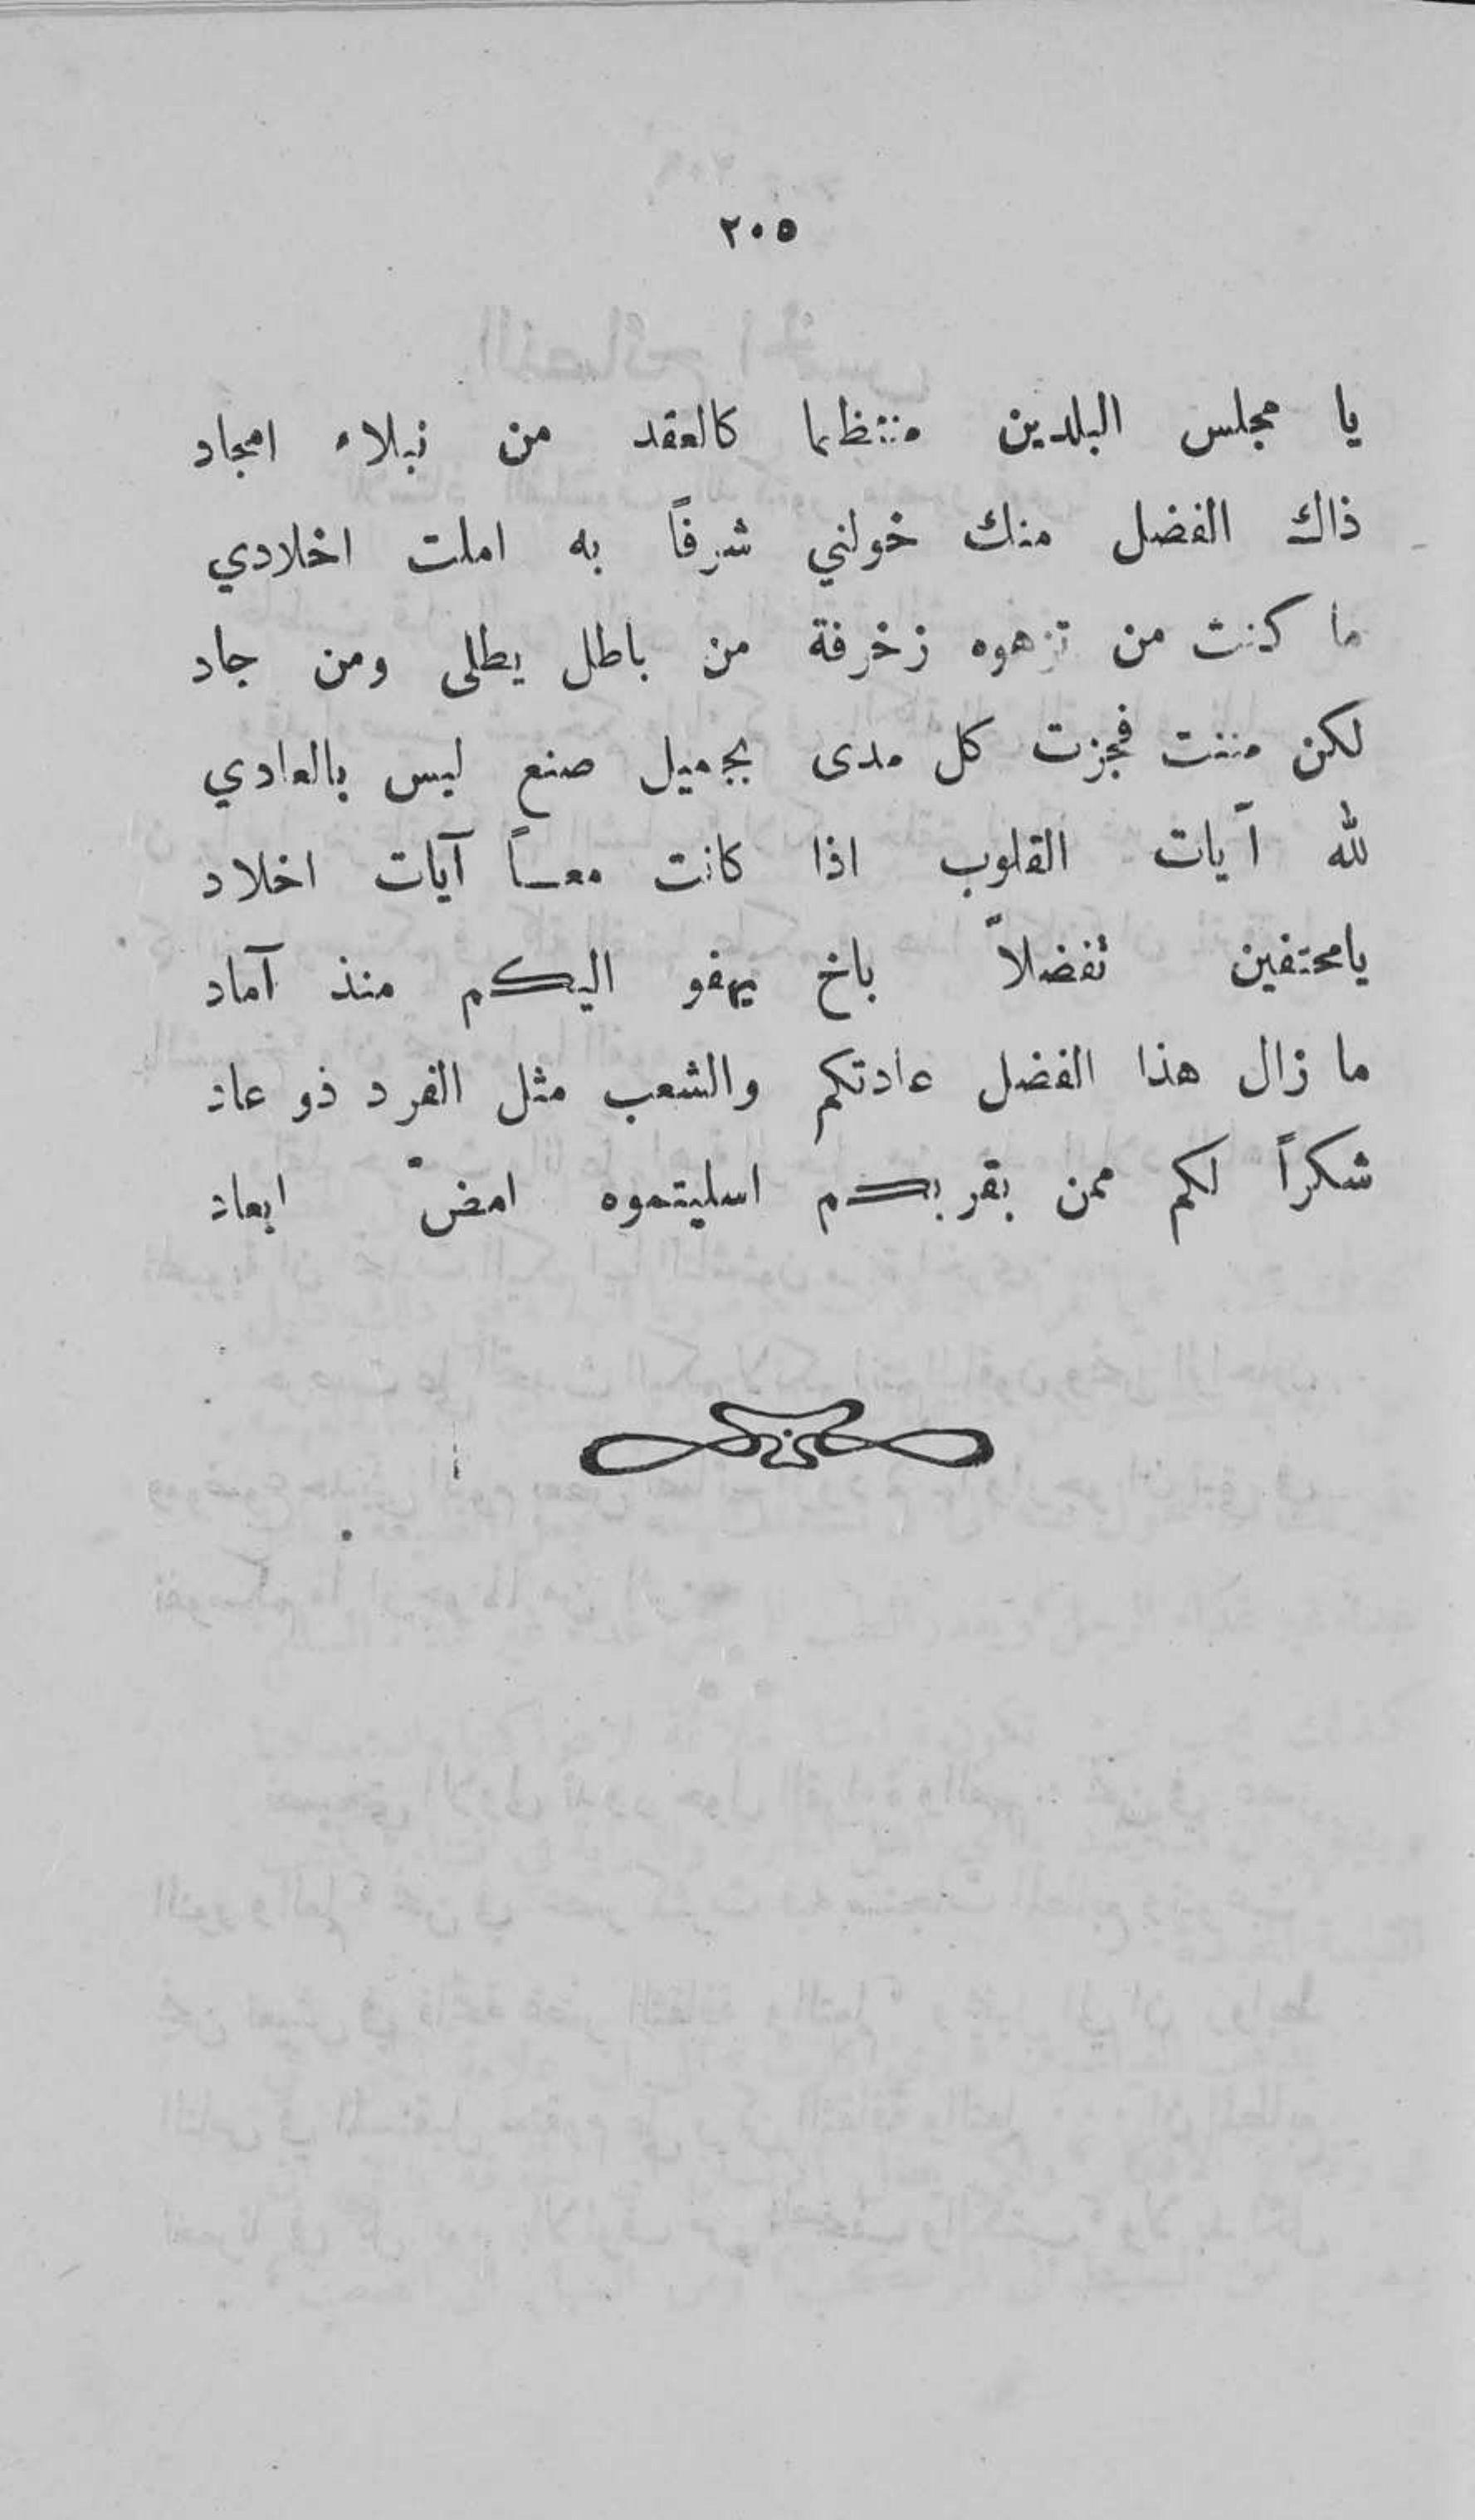 ٢٠٥
يا مجلس البلدين منتظما كالعقد من نبلاء امجاد
ذاك الفضل منك خولني شرفاً به املت اخلادي
ما كنت من تزهوه زخرفة من باطل يطلى ومن جاد
لكن مننت فجزت كل مدى بجميل صنع ليس بالعادي
لله آيات القلوب اذا كانت معـاً آيات اخلاد
يامحتفين تفضلاً باخ يهفو اليكم منذ آماد
ما زال هذا الفضل عادتكم والشعب مثل الفرد ذو عاد
شكراً لكم ممن بقربكم اسليتموه امضّ ابعاد